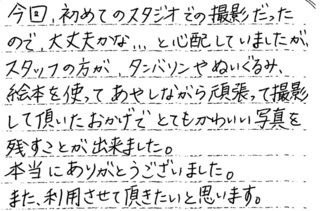 今回、初めてのスタジオでの撮影だった
ので、大丈夫かな…と心配していましたが、
スタッフの方が、タンバリンやぬいぐるみ、
絵本を使ってあやしながら頑張って撮影
して頂いたおかげでとてもかわいい写真を
残すことが出来ました。
本当にありがとうございました。
また、利用させて頂きたいと思います。